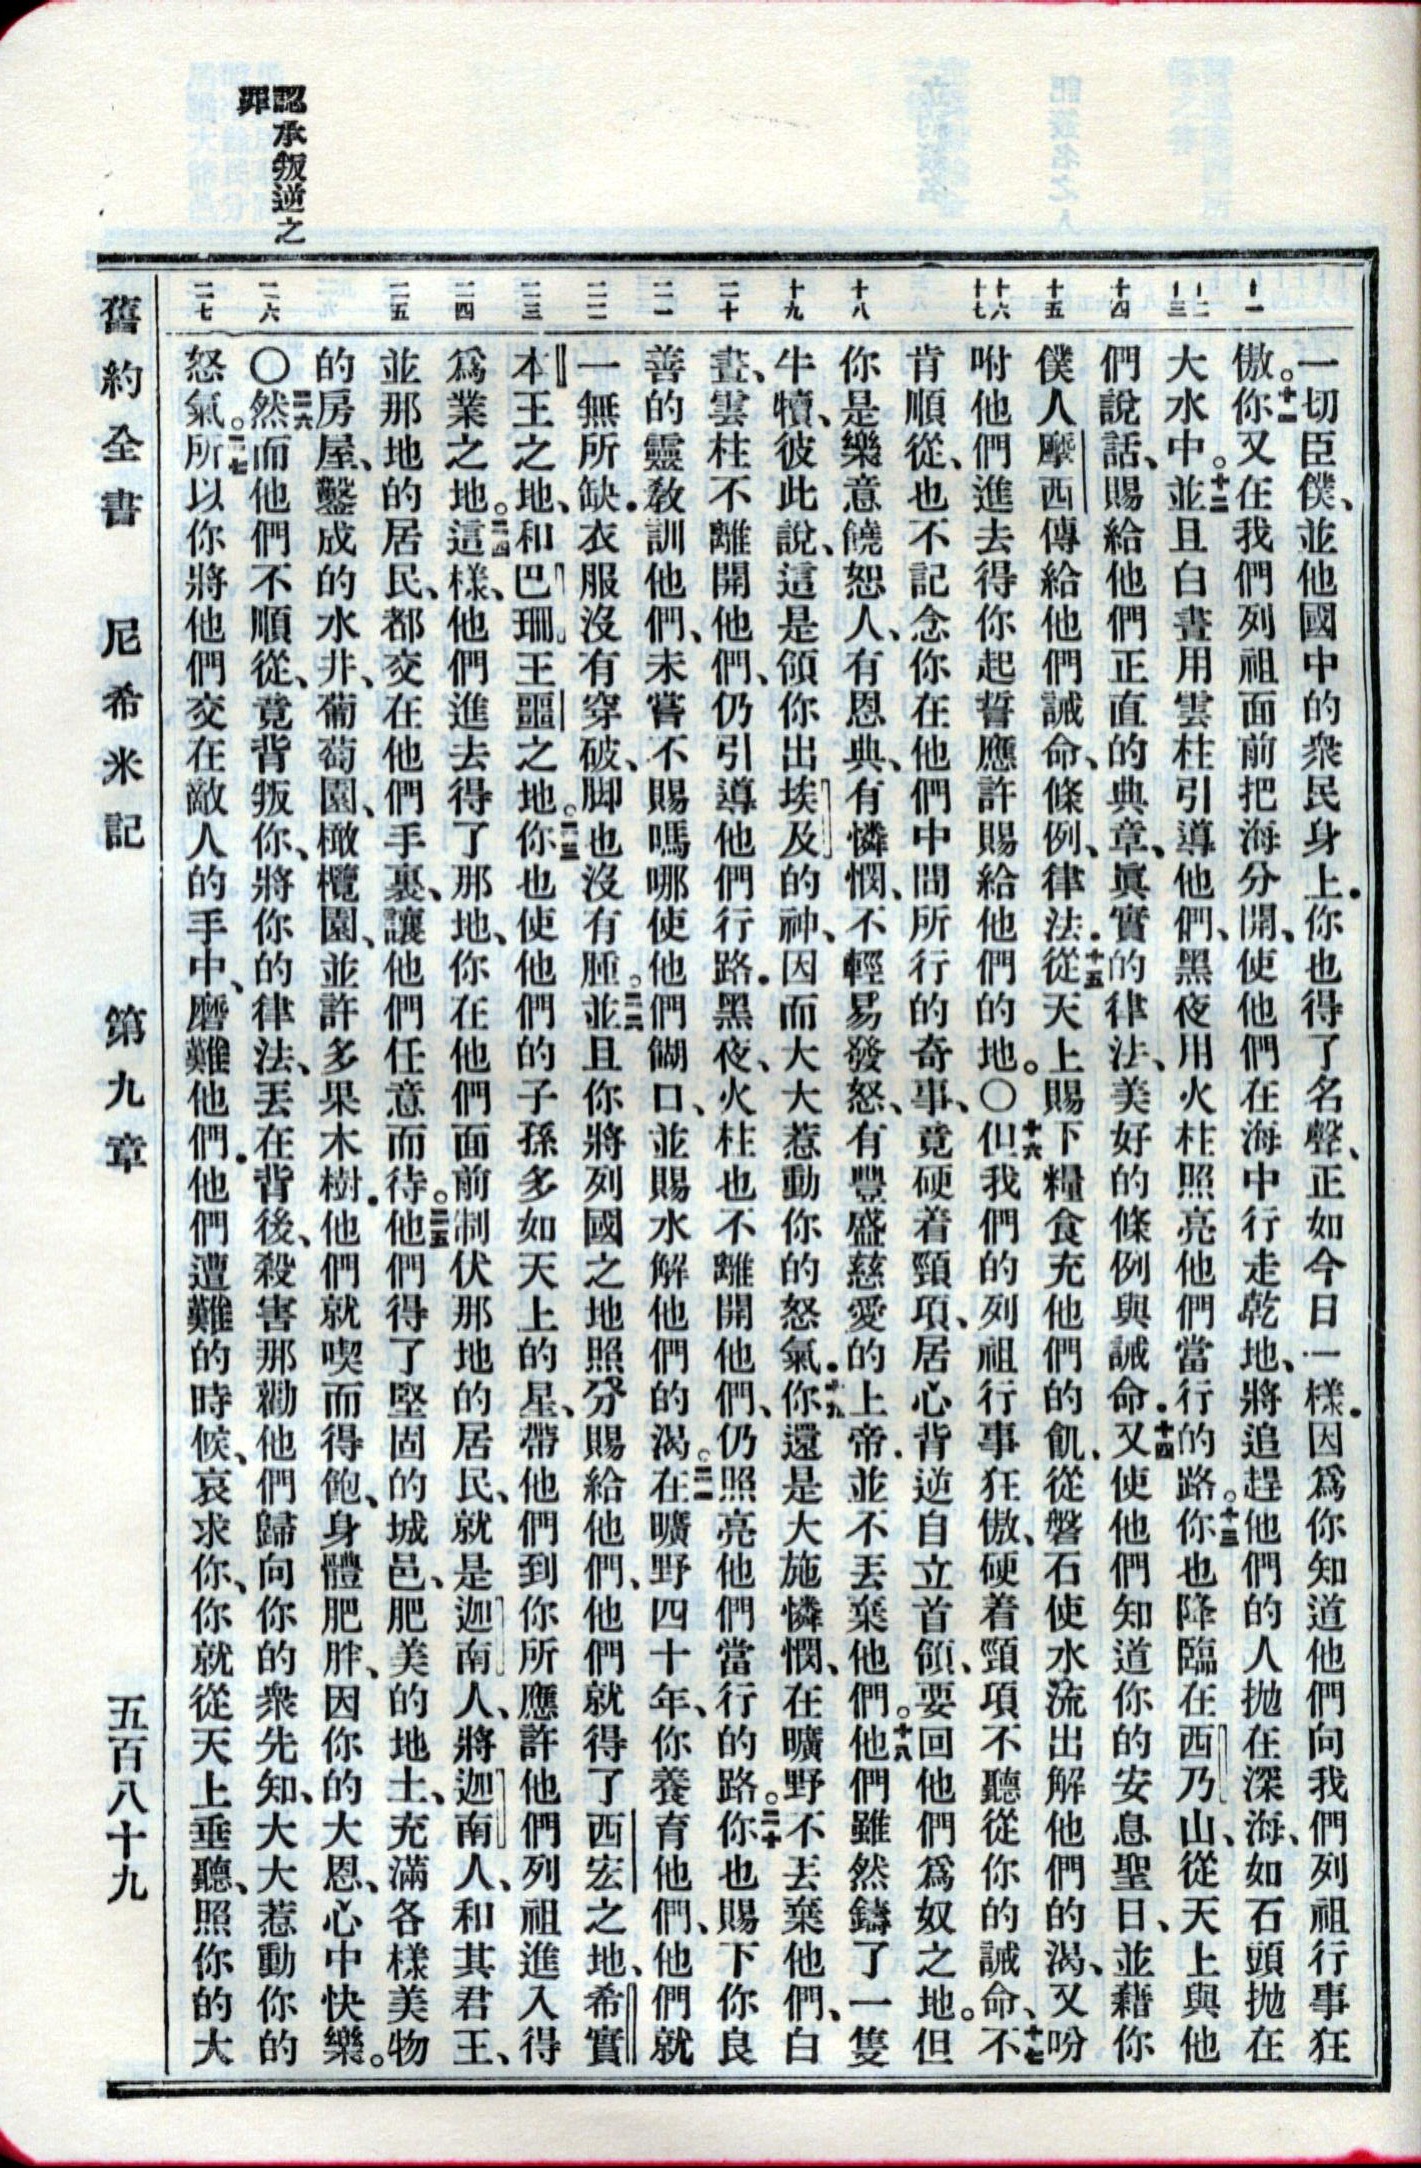 認承叛逆之
罪
十一
十二
十三
十四
十五
十六
十七
十八
十九
二十
二一
二二
二三
二四
二五
二六
二七
一切臣僕、並他國中的衆民身上．你也得了名聲、正如今日一樣．因爲你知道他們向我們列祖行事狂
傲。十一你又在我們列祖面前把海分開、使他們在海中行走乾地、將追趕他們的人抛在深海、如石頭抛在
大水中。十二並且白晝用雲柱引導他們、黑夜用火柱照亮他們當行的路。十三你也降臨在西乃山、從天上與他
們說話、賜給他們正直的典章、眞實的律法、美好的條例與誡命．十四又使他們知道你的安息聖日、並藉你
僕人摩西傳給他們誡命、條例、律法．十五從天上賜下糧食充他們的飢、從磐石使水流出解他們的渴、又吩
咐他們進去得你起誓應許賜給他們的地。〇十六但我們的列祖行事狂傲、硬着頸項不聽從你的誡命、十七不
肯順從、也不記念你在他們中間所行的奇事、竟硬着頸項、居心背逆自立首領、要回他們爲奴之地。但
你是樂意饒恕人、有恩典、有憐憫、不輕易發怒、有豐盛慈愛的上帝．並不丟棄他們。十八他們雖然鑄了一隻
牛犢、彼此說、這是領你出埃及的神、因而大大惹動你的怒氣．十九你還是大施憐憫、在曠野不丟棄他們、白
晝、雲柱不離開他們、仍引導他們行路．黑夜、火柱也不離開他們、仍照亮他們當行的路。二十你也賜下你良
善的靈教訓他們、未嘗不賜嗎哪使他們餬口、並賜水解他們的渴。二一在曠野四十年、你養育他們、他們就
一無所缺．衣服沒有穿破、脚也沒有腫。二二並且你將列國之地照分賜給他們、他們就得了西宏之地、希實
本王之地、和巴珊王噩之地。二三你也使他們的子孫多如天上的星、帶他們到你所應許他們列祖進入得
爲業之地。二四這樣、他們進去得了那地、你在他們面前制伏那地的居民、就是迦南人、將迦南人、和其君王、
並那地的居民、都交在他們手裏、讓他們任意而待。二五他們得了堅固的城邑、肥美的地土、充滿各樣美物
的房屋、鑿成的水井、葡萄園、橄欖園、並許多果木樹．他們就喫而得飽、身體肥胖、因你的大恩、心中快樂。
〇二六然而他們不順從、竟背叛你、將你的律法、丟在背後、殺害那勸他們歸向你的衆先知、大大惹動你的
怒氣。二七所以你將他們交在敵人的手中、磨難他們．他們遭難的時候、哀求你、你就從天上垂聽、照你的大
舊約全書　尼希米記　第九章　五百八十九